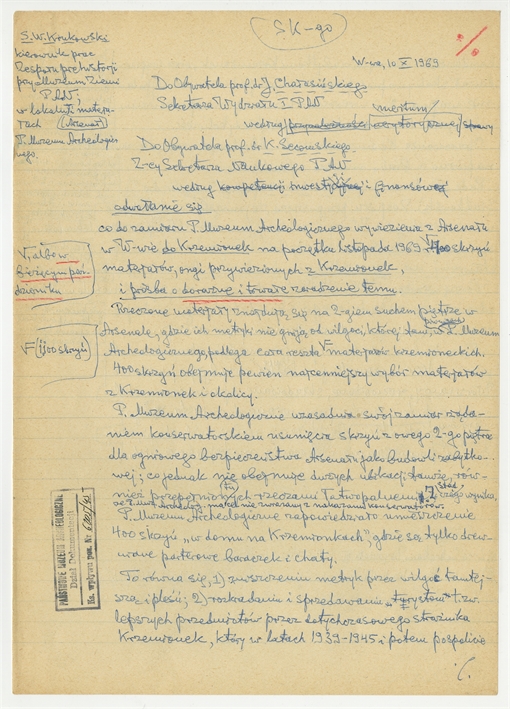 S.K-go
S. W. Krukowski
kierownik prac
Zespołu prehistorji
przy Muzeum Ziemi
PAN,
w lokalu i matera-
łach (Arsenał)
P. Muzeum Archeologicz-
nego.
W-wa, 10 X 1969
Do Obywatela prof. dr J. Chałasińskiego
Sekretarza Wydziału I PAN
meritum
według
sprawy
Do Obywatela prof. dr K. Secomskiego
Z-cy Sekretarza Naukowego PAN
według kompetencji finansów
odwołanie się
co do zamiaru P. Muzeum Archeologicznego wywiezienia z Arsenału
w W-wie do Krzemionek na początku listopada 1969 V 400 skrzyń
materjałów, ongi przywiezionych z Krzemionek,
i prośba o doraźne i trwałe zaradzenie temu.
V, albo w
bieżącym paź-
dzierniku
Rzeczone materjały znajdują się na 2-giem suchem piętrze w
Arsenale, gdzie ich metryki nie gniją od wilgoci, której
Muzeum
Archeologicznego, podlega cała reszta V materjałów krzemioneckich.
V (1100 skrzyń)
400 skrzyń obejmuje pewien najcenniejszy wybór materjałów
z Krzemionek i okolicy.
P. Muzeum Archeologiczne uzasadnia swój zamiar żąda-
niem konserwatorskiem usunięcia skrzyń z owego 2-go piętra
dla ogniowego bezpieczeństwa Arsenału jako budowli zabytko-
wej; co jednak nie obejmuje dwuch ubikacji tamże, rów-
nież przepełnionych rzeczami łatwopalnemi.
Stąd
czego wynika,
że P. Muz. Archeolog. nie
P. Muzeum Archeologiczne zapowiedziało umieszczenie
400 skrzyń „w domu na Krzemionkach”, gdzie są tylko drew-
niane parterowe baraczek i chaty.
To równa się, 1) zniszczeniu metryk przez wilgoć tamtej-
szą i pleśń; 2) rozkradaniu i sprzedawaniu „turystom” t. zw.
lepszych przedmiotów przez dotychczasowego strażnika
Krzemionek, który w latach 1939-1945 i potem pospolicie
·/.
PAŃSTWOWE MUZEUM ARCHEOLOGICZNE
Dział Dokumentacji
Ks. wpływu poz. Nr